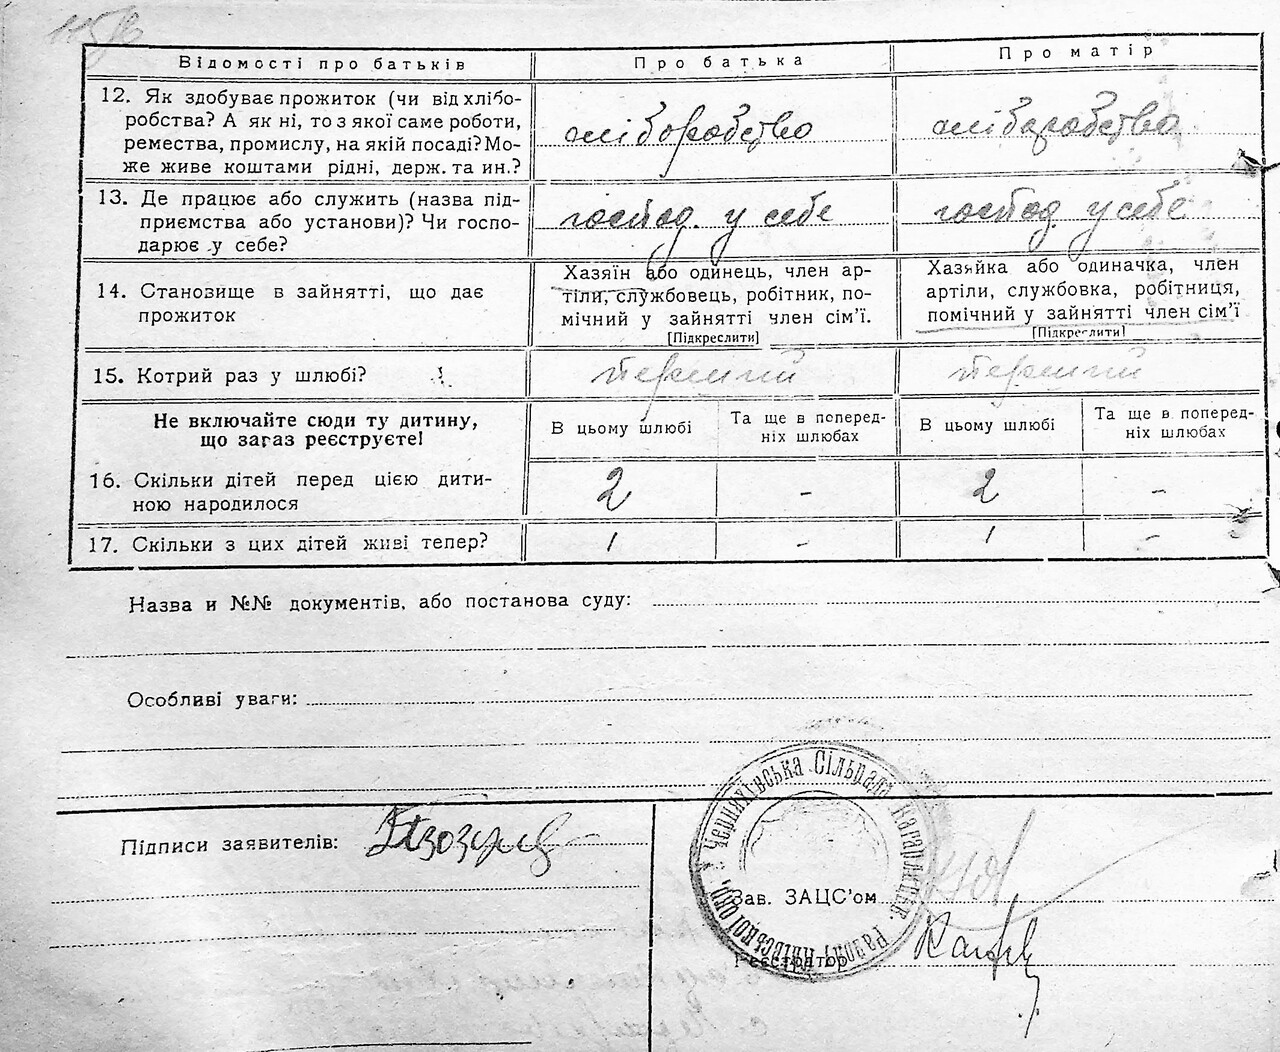 115
Відомості про батьків Про батька Про матір
12. Як здобуває прожиток (чи від хлібо-
робства? А як ні, то з якої саме роботи,
ремества, промислу, на якій посаді? Мо-
же живе коштами рідні, держ. та ин.?
хліборобство хліборобство
13. Де працює або служить (назва під-
приємства або установи)? Чи госпо-
дарює у себе?
господ. у себе господ. у себе
14. Становище в зайнятті, що дає
прожиток
Хазяїн або одинець, член ар-
тіли, службовець, робітник, по-
мічний у зайнятті член сім'ї.
[Підкреслити]
Хазяйка або одиначка, член
артіли, службовка, робітниця,
помічний у зайнятті член сім'ї
[Підкреслити]
15. Котрий раз у шлюбі? первший первший
Не включайте сюди ту дитину,
що зараз реєструєте!
В цьому шлюбі
Та ще в поперед-
ніх шлюбах
В цьому шлюбі
Та ще в поперед-
ніх шлюбах
16. Скільки дітей перед цією дити-
ною народилося
2 - 2 -
17. Скільки з цих дітей живі тепер? 1 - 1 -
Назва и №№ документів, або постанова суду:
Особливі уваги:
Підписи заявителів:
Черняхівська Сільрада Кагарлицьк. Району Київської окр.
Зав. ЗАЦС'ом
Реєстратор